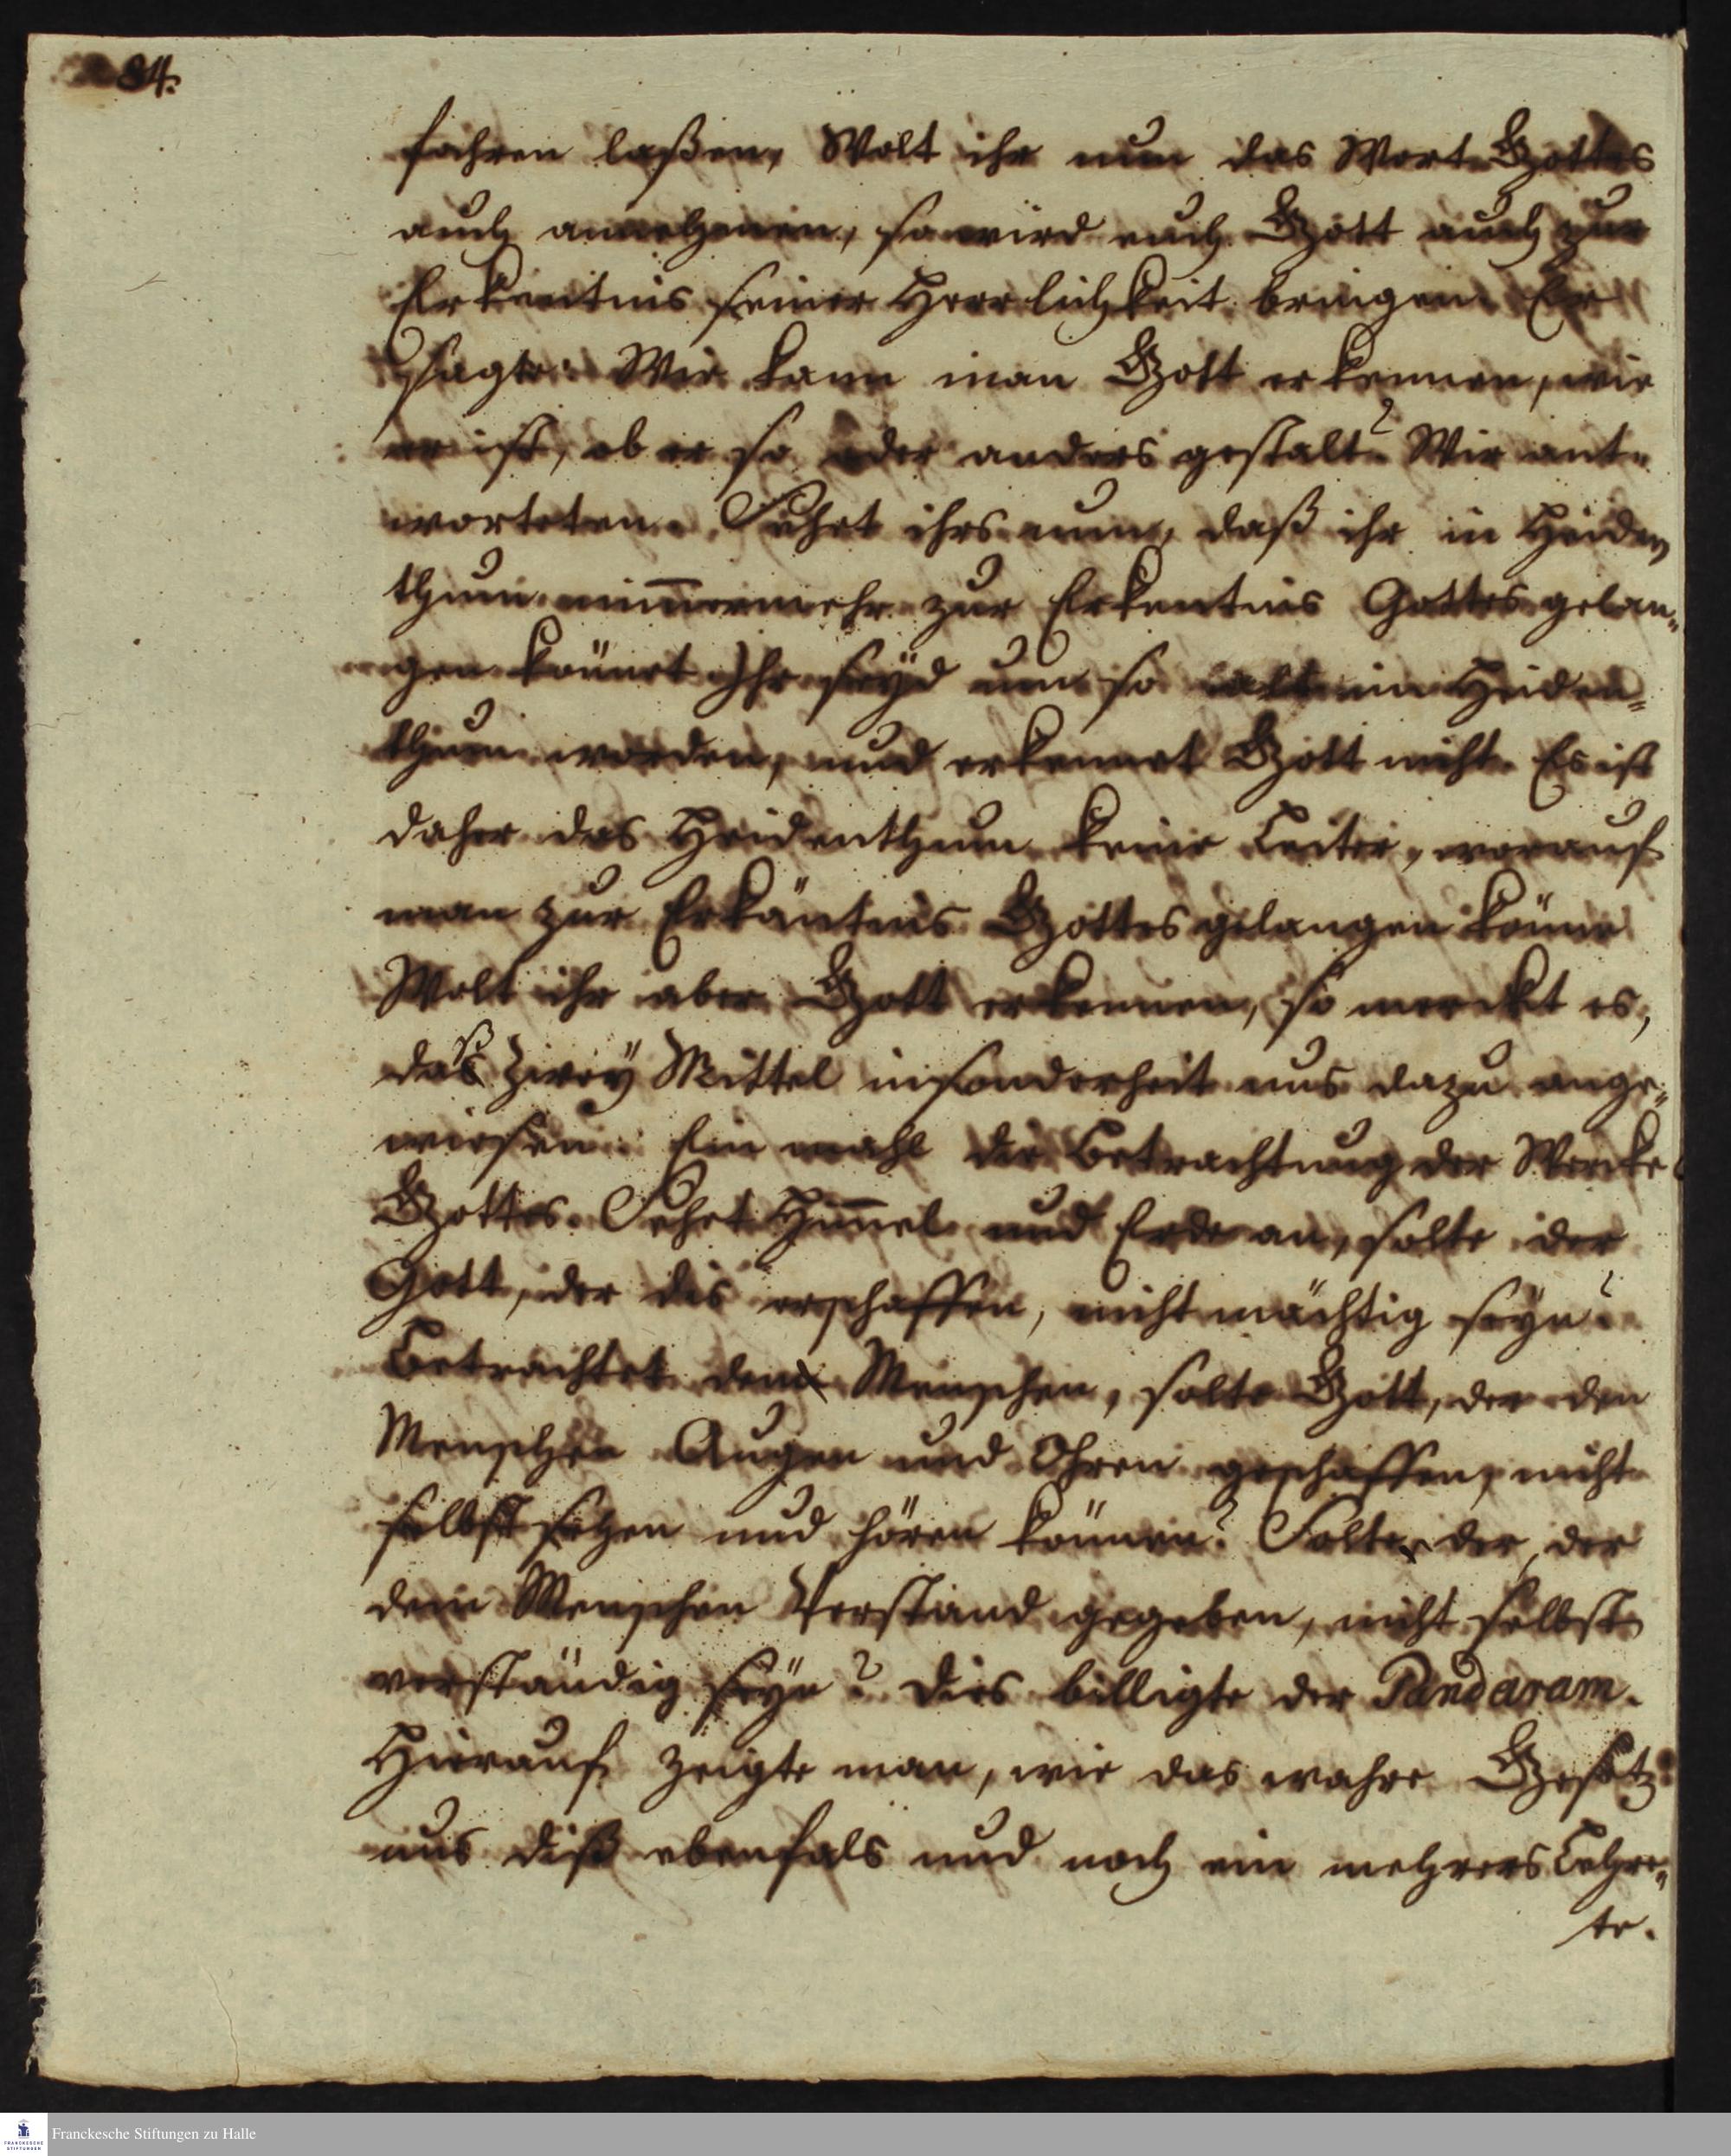 84.
fahren laßen, Wolt ihr nun das Wort Gottes
auch annehmen, so wird euch Gott auch zur
Erkentnis seiner Herrlichkeit bringen. Er
sagte: Wie kann man Gott erkennen, wie
er ist, ob er so oder anders gestalt? Wir ant-
worteten. Sehet ihrs nun, daß ihr in Heiden
thum nim̅ermehr zur Erkentnis Gottes gelan-
gen könnet Ihr seÿd nun so alt im Heiden-
thum worden, und erkennet Gott nicht. Es ist
daher das Heidenthum keine Leiter, worauf
man zur Erkäntnis Gottes gelangen könne
Wolt ihr aber Gott erkennen, so mercket es,
daß zweÿ Mittel insonderheit uns dazu ange-
wiesen. Ein mahl die Betrachtung der Wercke
Gottes. Sehet Him̅el und Erde an, solte der
Gott, der dis erschaffen, nicht mächtig seÿn?
Betrachtet den Menschen, solte Gott, der den
Menschen Augen und Ohren geschaffen, nicht
selbst sehen und hören können? Solte der, der
dem Menschen Verstand gegeben, nicht selbst
verständig seÿn? Dies billigte der Pandaram.
Hierauf zeigte man, wie das wahre Gesetz
uns diß ebenfals und noch ein mehrers Lehre-
te.
Franckesche Stiftungen zu Halle